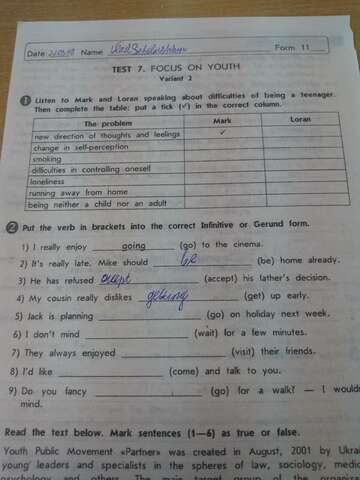 Date Name Form 11
TEST 7. FOCUS ON YOUTH
Variant 2
1 Listen to Mark and Loran speaking about difficulties of being a teenager.
Then complete the table: put a tick (✓) in the correct column.
The problem Mark Loran
new direction of thoughts and feelings ✓
change in self-perception
smoking
difficulties in controlling oneself
loneliness
running away from home
being neither a child nor an adult
2 Put the verb in brackets into the correct Infinitive or Gerund form.
1) I really enjoy going (go) to the cinema.
2) It's really late. Mike should be (be) home already.
3) He has refused (accept) his father's decision.
4) My cousin really dislikes getting (get) up early.
5) Jack is planning (go) on holiday next week.
6) I don't mind (wait) for a few minutes.
7) They always enjoyed (visit) their friends.
8) I'd like (come) and talk to you.
9) Do you fancy (go) for a walk? — I would
mind.
Read the text below. Mark sentences (1—6) as true or false.
Youth Public Movement «Partner» was created in August, 2001 by Ukra
young leaders and specialists in the spheres of law, sociology, medic
psychology and others. The main target group of the organi